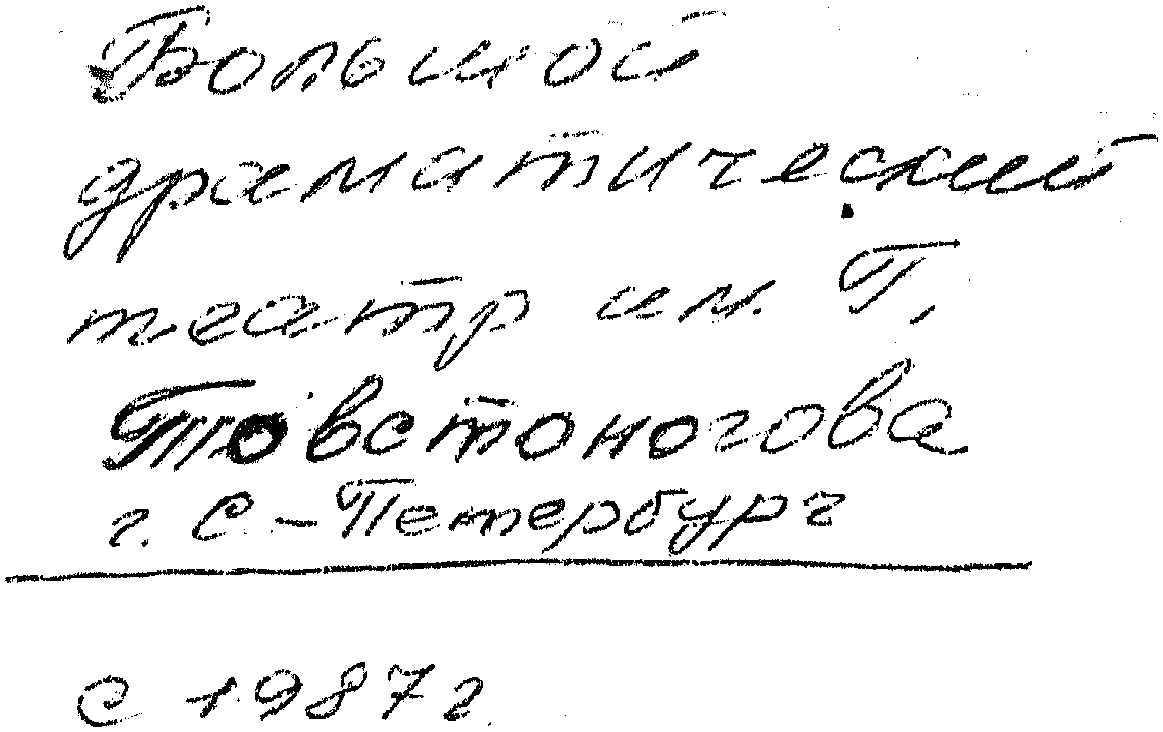 Большой
драматический
театр им. Г.
Товстоногова
г. С-Петербург
с 1987г